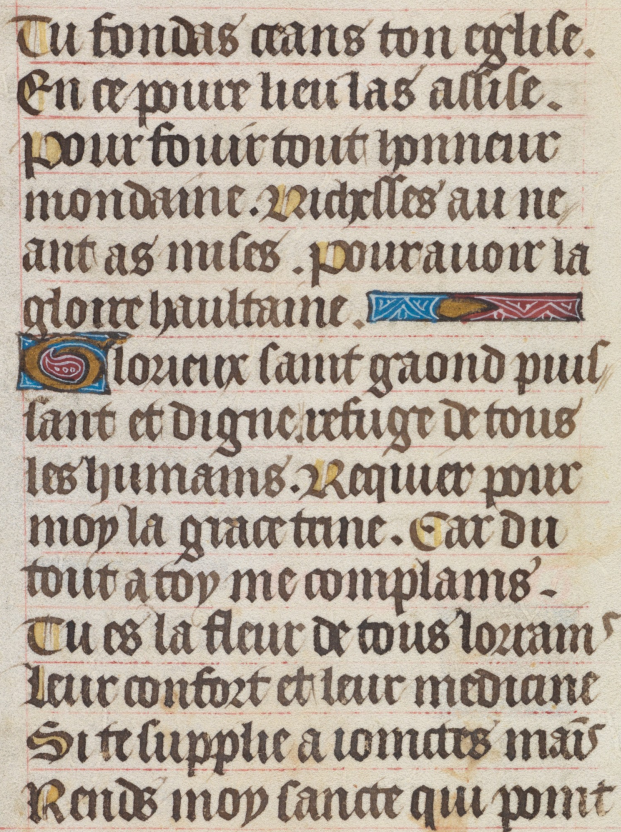 Tu fondas ceans ton eglise.
En ce poure lieu las assise.
Pour fouir tout honneur
mondaine. Richesses au ne
ant as mises. Pour auoir la
gloire haultaine.
Glorieux saint gaond puis
sant et digne. refuge de tous
les humains. Requier pour
moy la grace trine. Car du
tout a toy me complains.
Tu es la fleur de tous lorrains
Leur confort et leur medicine
Si te supplie a ioinctes mais
Rends moy sancte qui point